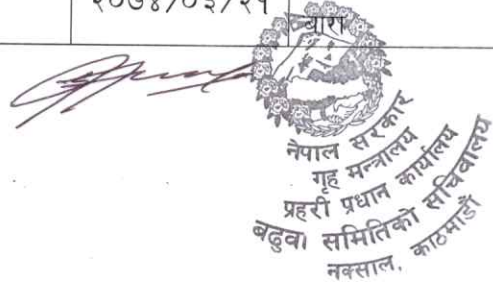 २०७४/०३/२१
बारा
नेपाल सरकार
गृह मन्त्रालय
प्रहरी प्रधान कार्यालय
बढुवा समितिको सचिवालय
नक्साल, काठमाडौं